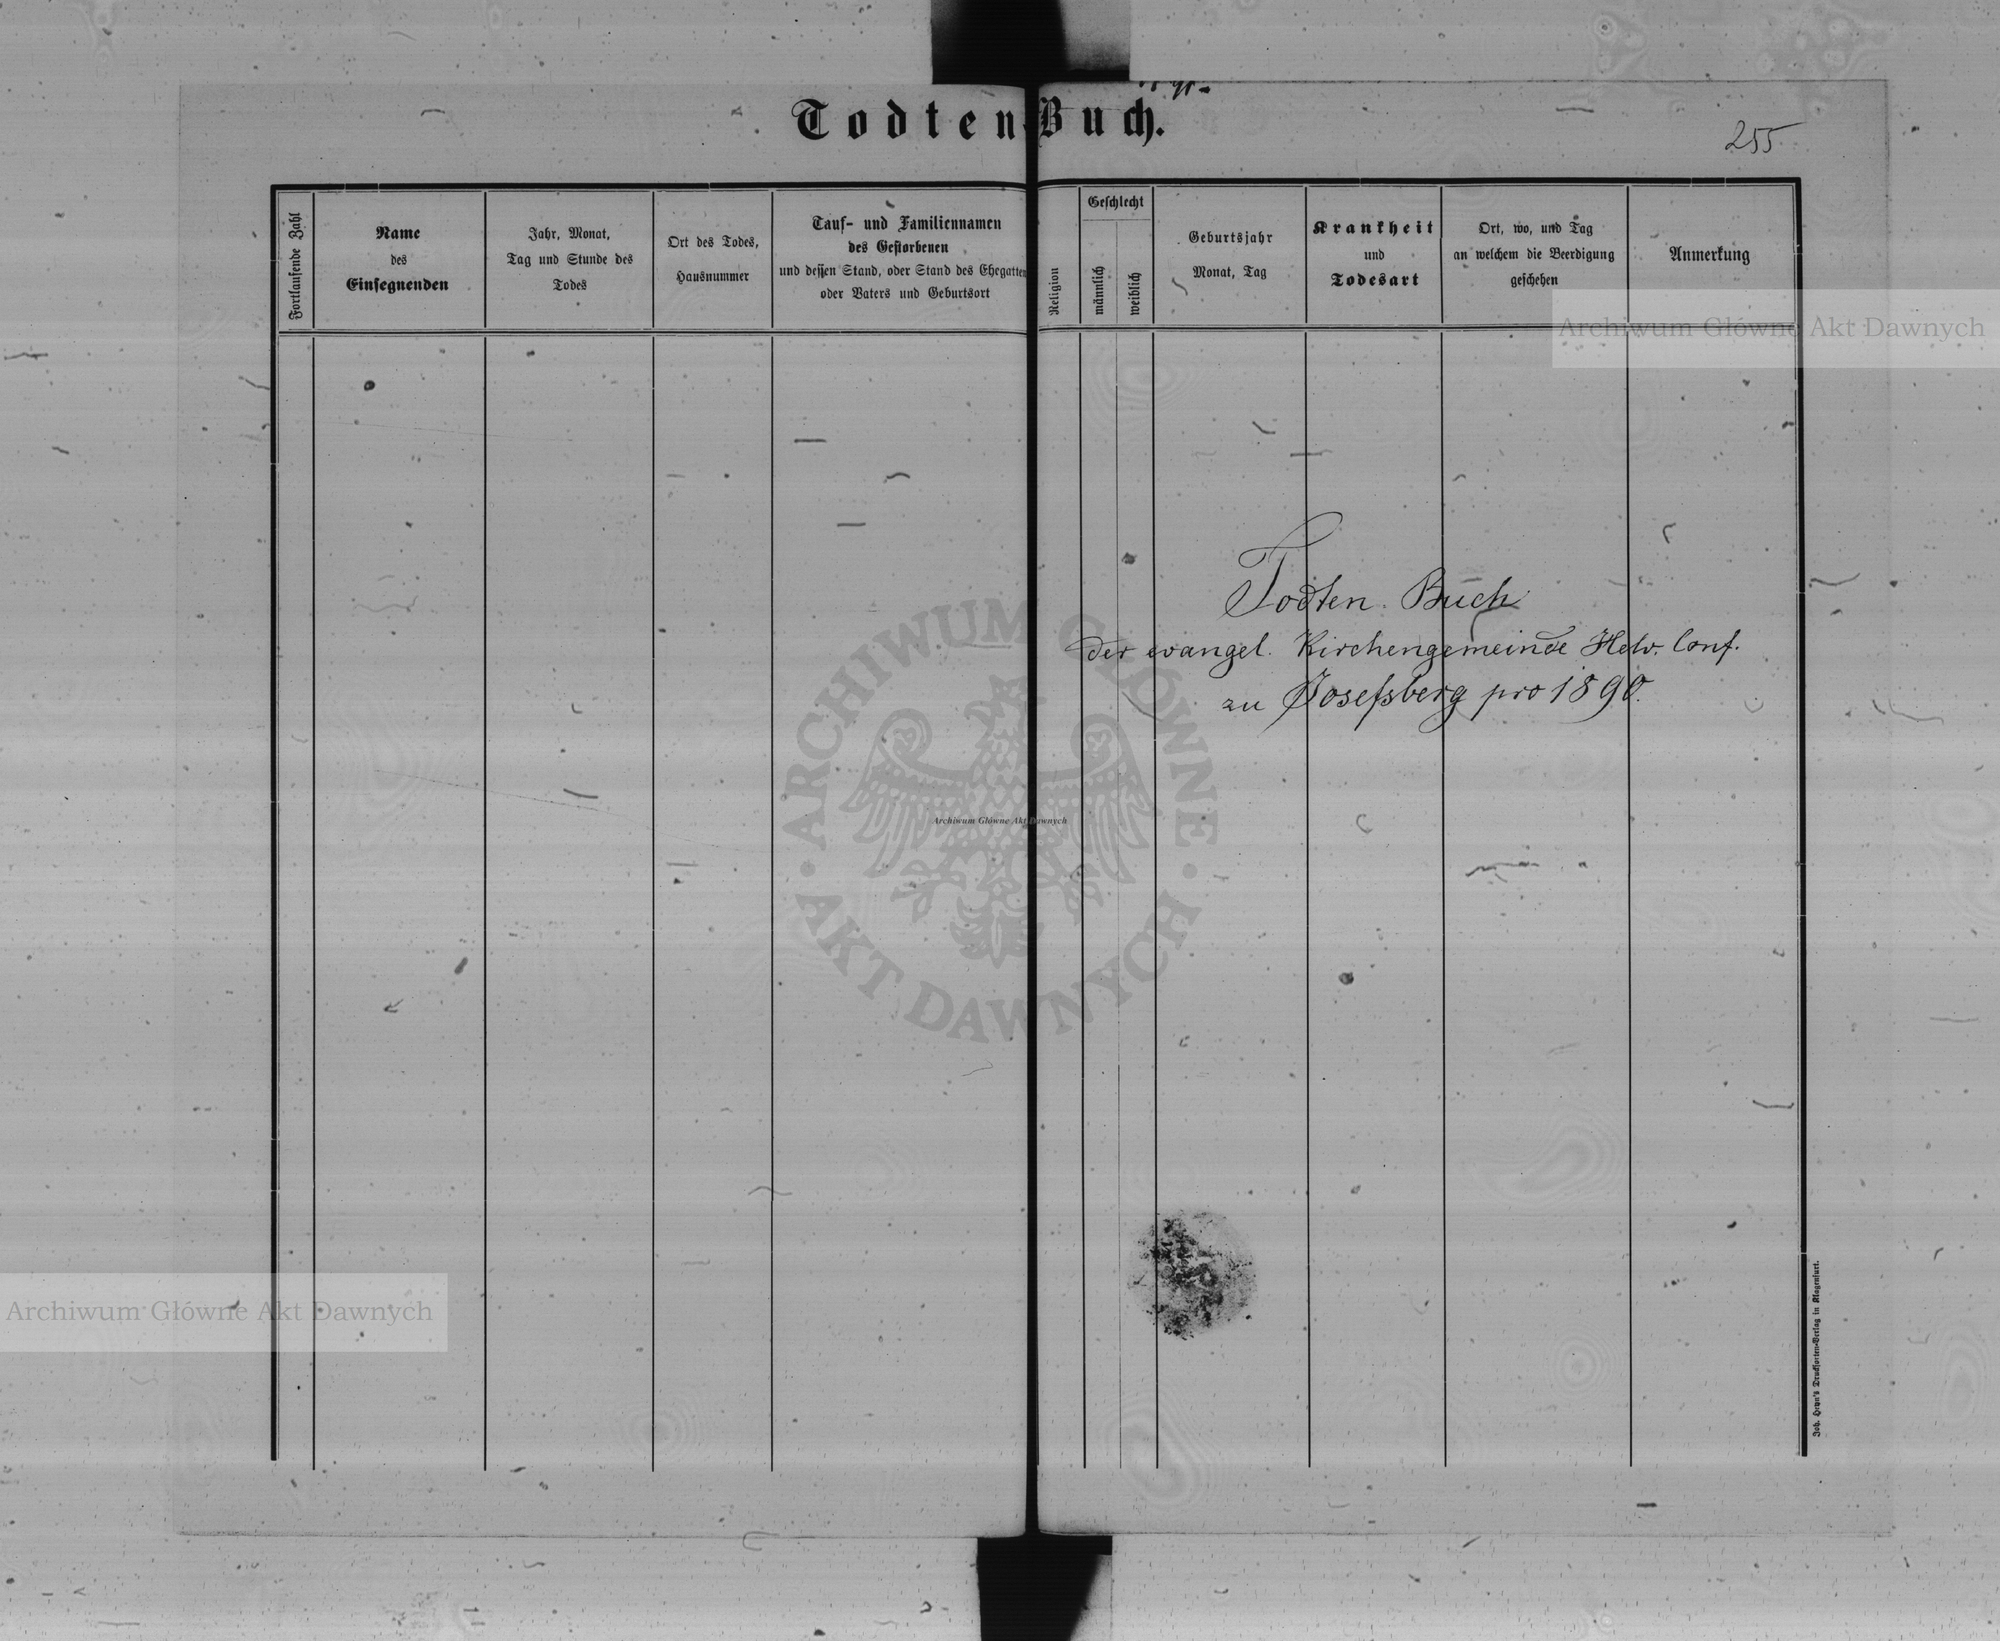 Todten-Buch.
255
Fortlaufende Zahl
Name
des
Einsegnenden
Jahr, Monat,
Tag und Stunde des
Todes
Ort des Todes,
Hausnummer
Tauf- und Familiennamen
des Gestorbenen
und dessen Stand, oder Stand des Ehegatten
oder Vaters und Geburtsort
Religion
Geschlecht
männlich
weiblich
Geburtsjahr
Monat, Tag
Krankheit
und
Todesart
Ort, wo, und Tag
an welchem die Beerdigung
geschehen
Anmerkung
Archiwum Główne Akt Dawnych
Todten Buch
der evangel. Kirchengemeinde Helv. Conf.
zu Josefsberg pro 1890.
ARCHIWUM GŁÓWNE
AKT DAWNYCH
Archiwum Główne Akt Dawnych
Archiwum Główne Akt Dawnych
Joh. Heyn's Drucksorten-Verlag in Klagenfurt.